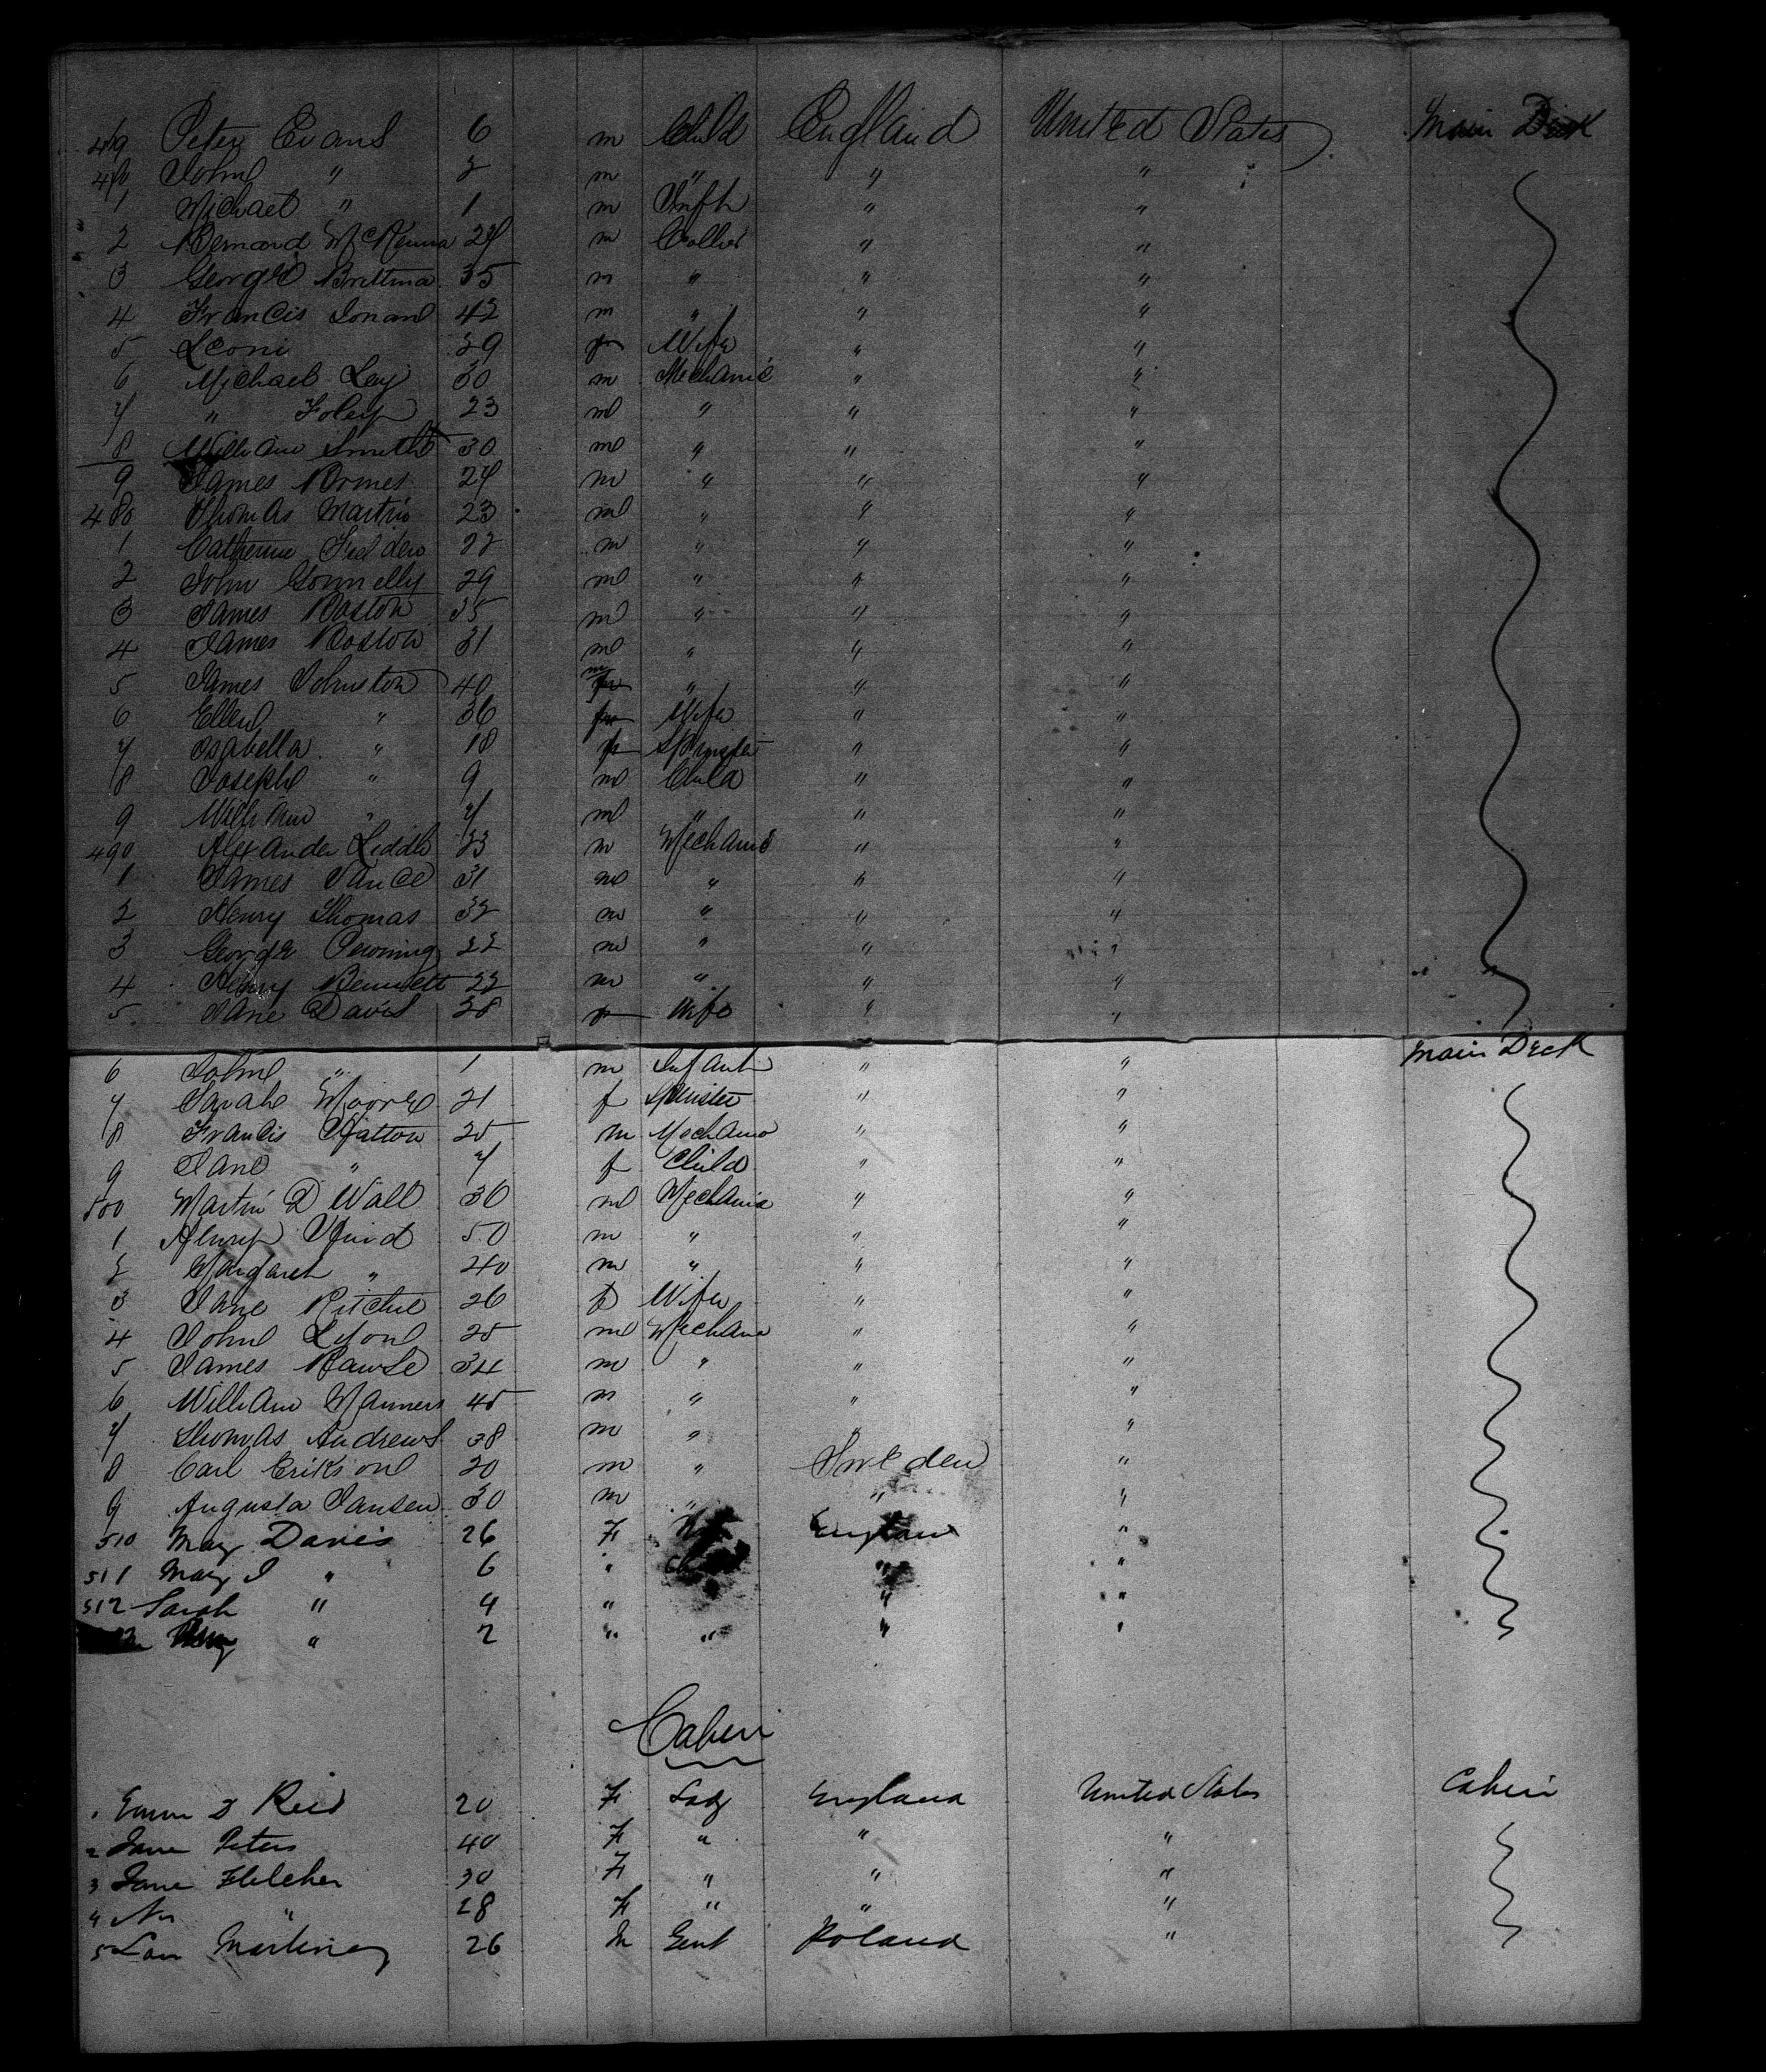 469 Peter Evans 6 m Child England United States Main Deck
470 John " 2 m " " "
1 Michael " 1 m Infh " "
2 Bernard McKenna 24 m Collier " "
3 George Brittma 35 m " " "
4 Francis 42 m " " "
5 Leoni 29 f Wife " "
6 Michael Ley 30 m Mechanic " "
7 " Foley 23 m " " "
8 William Smith 30 m " " "
9 James 24 m " " "
480 Thomas Martin 23 m " " "
1 Catherine 22 m " " "
2 John Connelly 29 m " " "
3 James Boston 35 m " " "
4 James Bostow 31 m " " "
5 James Johnston 40 m " " "
6 Ellen " 36 f Wife " "
7 Isabella " 18 f Spinster " "
8 Joseph " 9 m Child " "
9 William " 7 m " " "
490 Alexander Liddle 23 m Mechanic " "
1 James Vance 31 m " " "
2 Henry Thomas 32 m " " "
3 George 22 m " " "
4 Henry Bennett 22 m " " "
5 Jane Davis 28 f Wife " "
6 John " 1 m Infant " " Main Deck
7 Sarah Moore 21 f Spinster " "
8 Francis Hatton 25 m Mechanic " "
9 Jane " 7 f Child " "
500 Martin D Wall 36 m Mechanic " "
1 Henry Hurd 50 m " " "
2 Margaret " 40 m " " "
3 Jane Ritchie 26 f Wife " "
4 John Lyon 25 m Mechanic " "
5 James Rawle 34 m " " "
6 William Manners 45 m " " "
7 Thomas Andrews 38 m " " "
8 Carl Erikson 20 m " Sweden "
9 Augusta Jansen 30 m " " "
510 Mary Davies 26 F England "
511 Mary J " 6 " " "
512 Sarah " 4 " " "
" 2 " " " "
Cabin
1 D Reid 20 F Lady England United States Cabin
2 Jane Peters 40 F " " "
3 Jane Fletcher 30 F " " "
4 " 28 F " " "
5 26 M Gent Poland "